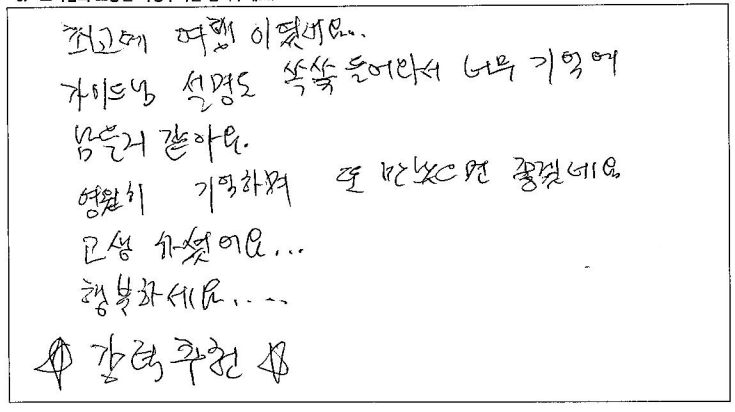 최고에 여행 이였어요...
가이드님 설명도 쏙쏙 들어와서 너무 기억에
남을거 같아요.
영원히 기억하며 또 만났으면 좋겠네요
고생 하셨어요...
행복하세요.....
☆ 강력추천 ☆